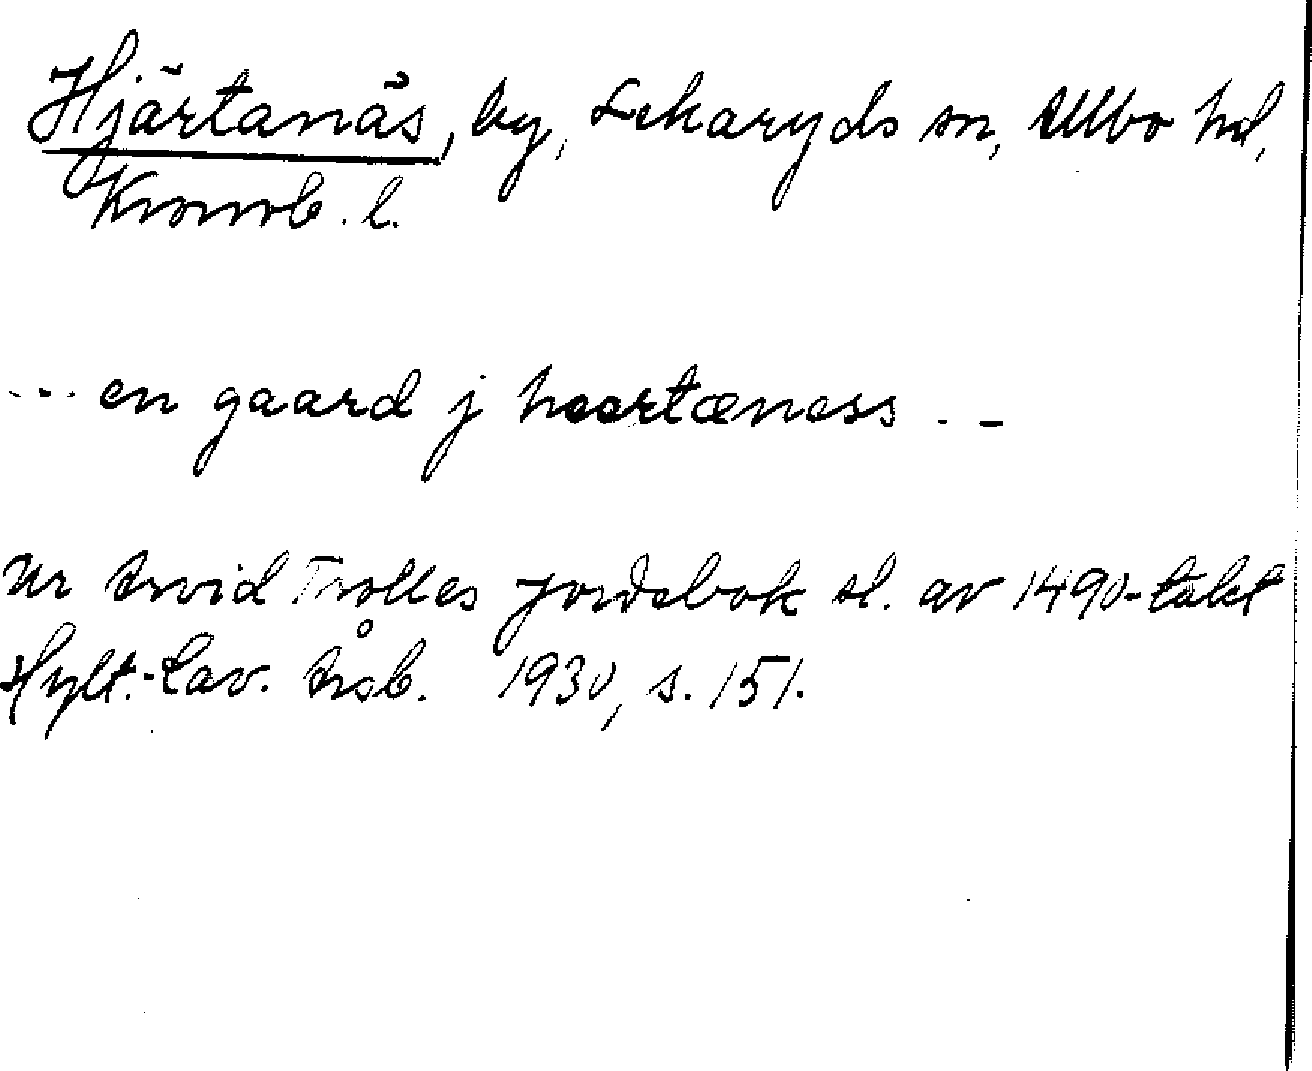 Hjärtanäs, by, Lekaryds sn, Allbo hd,
Kronob. l.
... en gaard j heertæness . -
Ur Arvid Trolles jordebok sl. av 1490-talet
Hylt.-Cav. Årsb. 1930, s. 151.